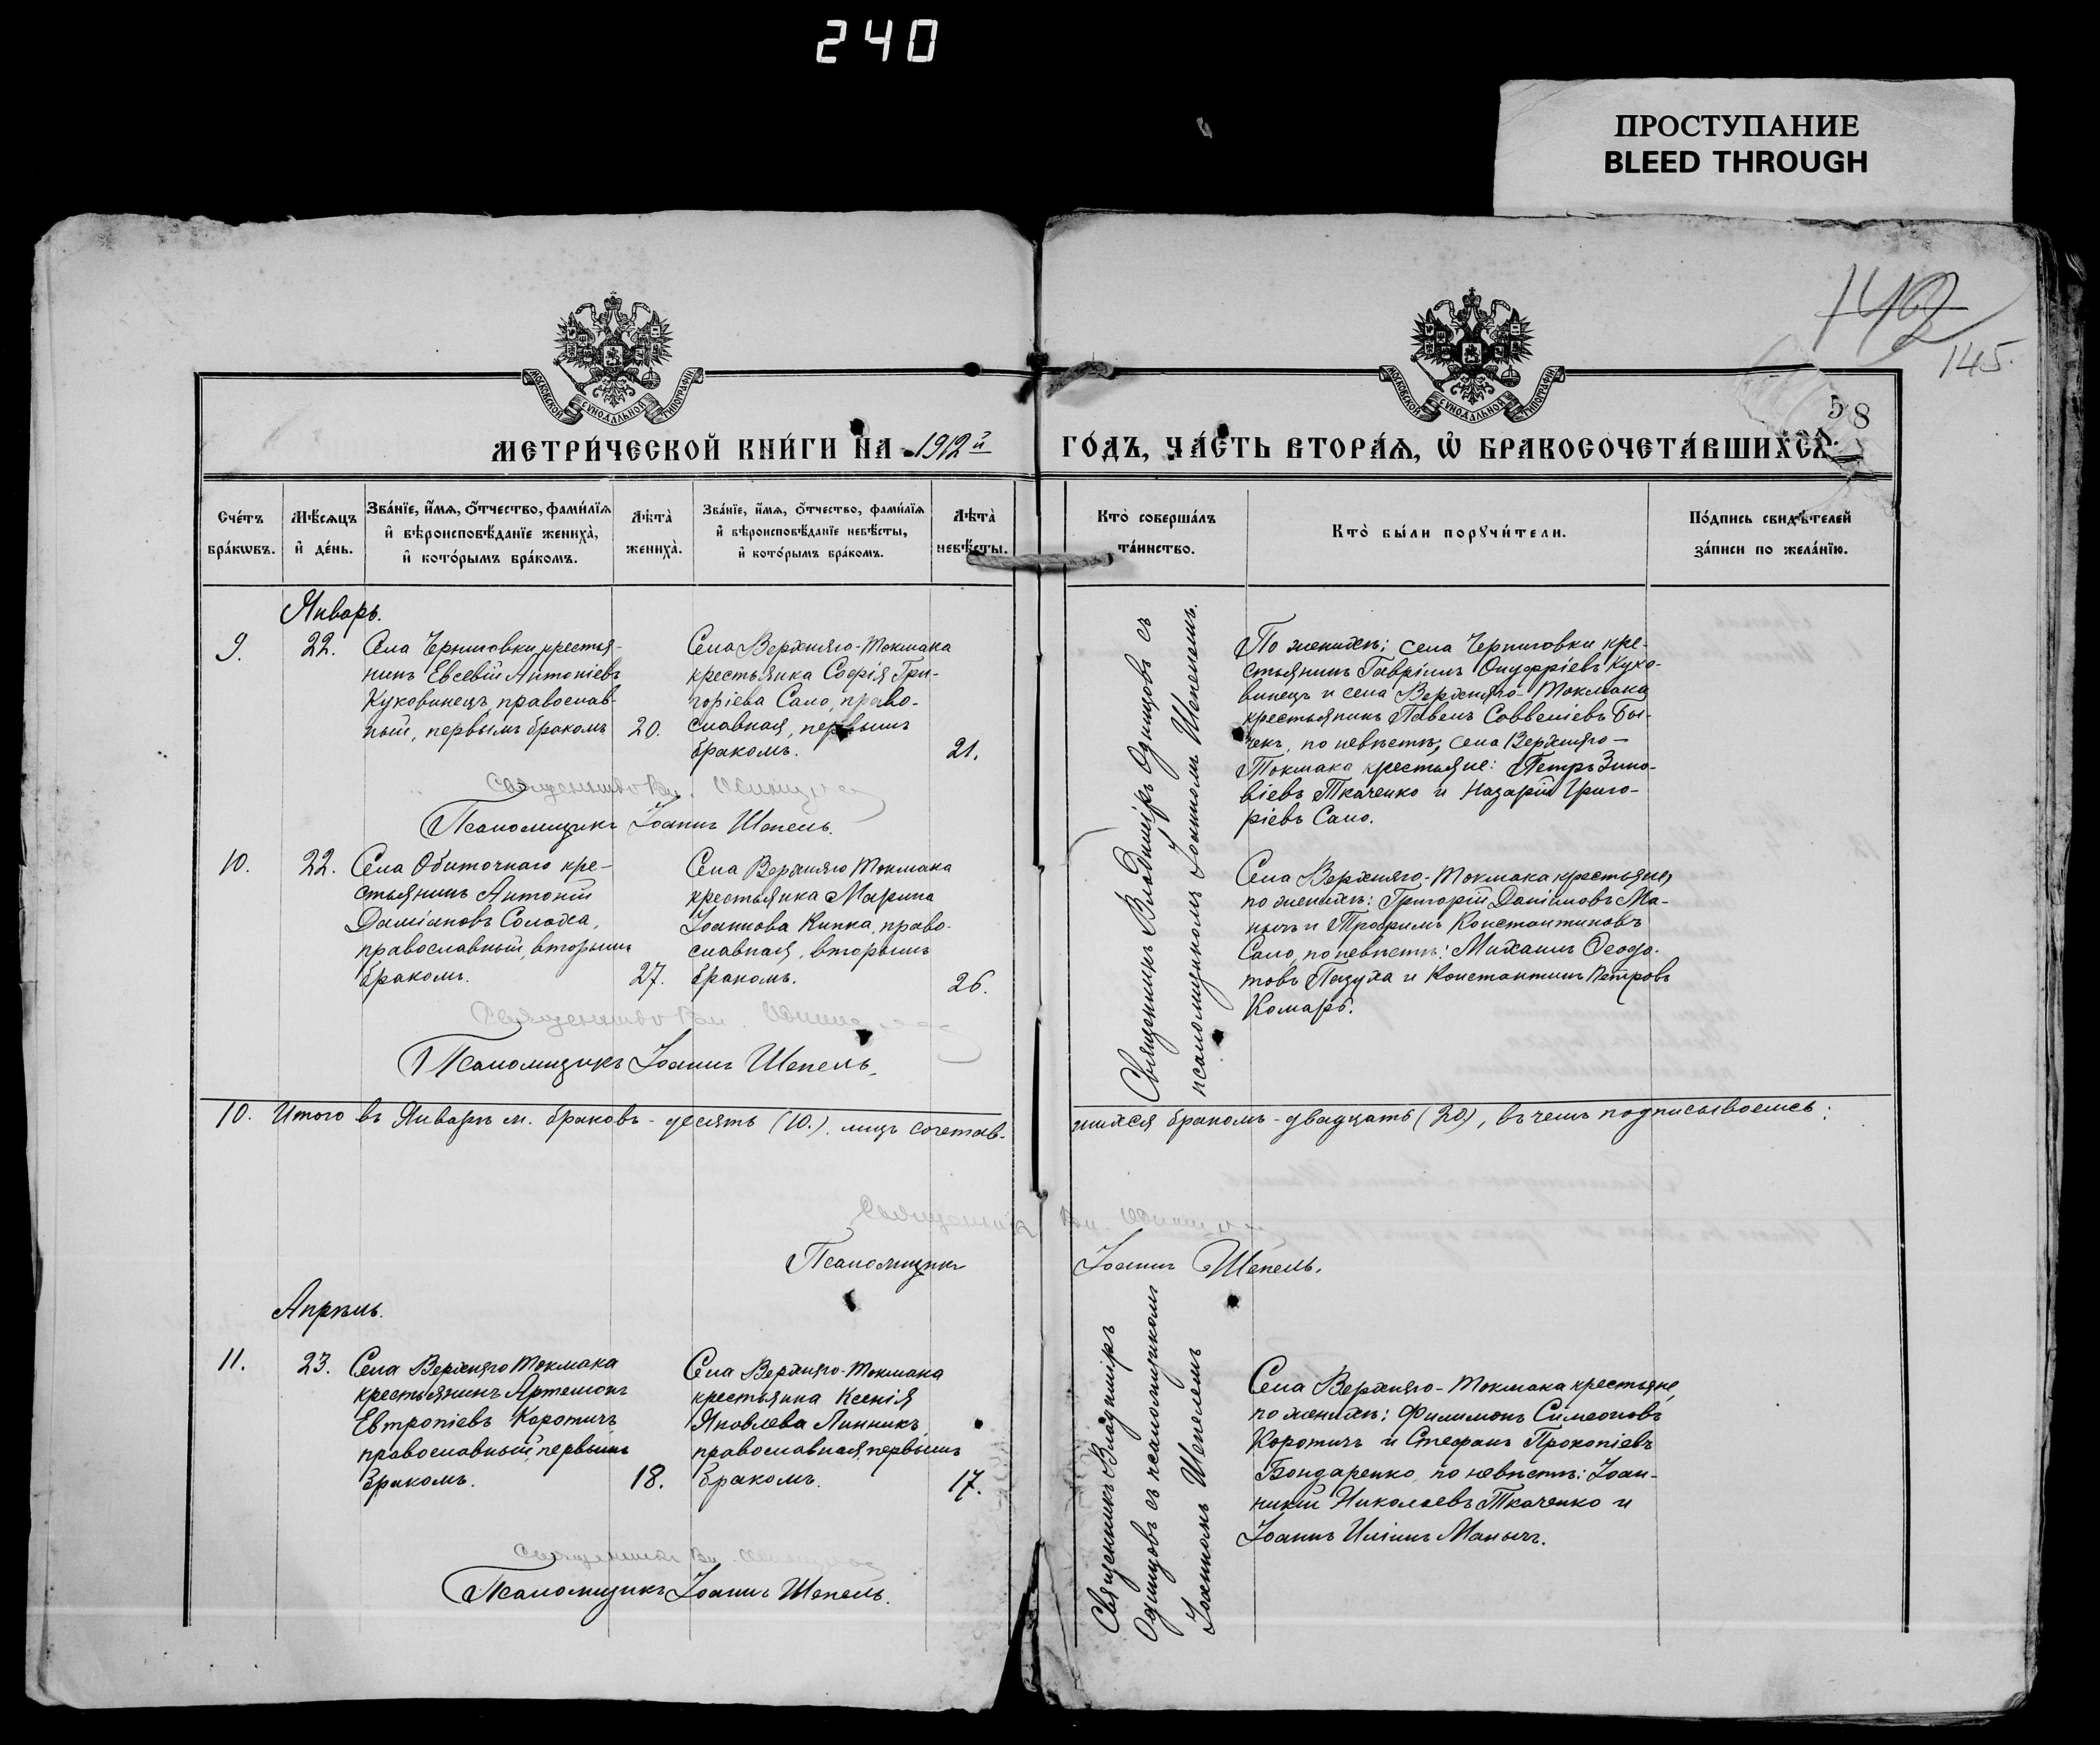 240
ПРОСТУПАНИЕ
BLEED THROUGH
142
145.
58
МОСКОВСКОЙ СѴНОДАЛЬНОЙ ТИПОГРАФІИ
МОСКОВСКОЙ СѴНОДАЛЬНОЙ ТИПОГРАФІИ
МЕТРИ́ЧЕСКОЙ КНИ́ГИ НА 1912й
ГО́ДЪ, ЧА́СТЬ ВТОРА́Я, Ѽ БРАКОСОЧЕТА́ВШИХСЯ.
Сче́тъ
бра́кωвъ.
Мѣ́сяцъ
и҆ де́нь.
Зва́нїе, и҆́мя, ѻ҆́тчество, фами́лїя
и҆ вѣроисповѣ́данїе жениха̀,
и҆ кото́рымъ бра́комъ.
Лѣта̀
жениха̀.
Зва́нїе, и҆́мя, ѻ҆́тчество, фами́лїя
и҆ вѣроисповѣ́данїе невѣ́сты,
и҆ кото́рымъ бра́комъ.
Лѣта̀
невѣ́сты.
Кто̀ соверша́лъ
та́инство.
Кто̀ бы́ли порꙋчи́тели.
По́дпись свидѣ́телей
за́писи по жела́нїю.
Январь.
9.
22.
Села Черниговки крестья-
нинъ Евсевій Антоніевъ
Куковинецъ, православ-
ный, первымъ бракомъ
20.
Села Верхняго-Токмака
крестьянка Софія Гри-
горіева Сало, право-
славная, первымъ
бракомъ.
21.
Священникъ Владиміръ Одинцовъ съ
псаломщикомъ Іоанномъ Шепелемъ.
По женихѣ: села Черниговки кре-
стьянинъ Гавріилъ Онуфріевъ Куко-
винецъ и села Верхняго-Токмака
крестьянинъ Павелъ Соввеліевъ Бы-
чекъ, по невѣстѣ; села Верхняго-
Токмака крестьяне: Петръ Зино-
віевъ Ткаченко и Назарій Григо-
ріевъ Сало.
Священник Вл. Одинцов
Псаломщикъ Іоаннъ Шепель.
10.
22.
Села Обиточнаго кре-
стьянинъ Антоній
Даміановъ Солоха,
православный, вторымъ
бракомъ.
27.
Села Верхняго Токмака
крестьянка Марина
Іоаннова Кипка, право-
славная, вторымъ
бракомъ.
26.
Села Верхняго-Токмака крестьяне,
по женихѣ: Григорій Даніиловъ Ма-
нычъ и Трофимъ Константиновъ
Сало, по невѣстѣ: Михаилъ Ѳеодо-
товъ Пазуха и Константинъ Петровъ
Комаръ.
Священник Вл. Одинцов
Псаломщикъ Іоаннъ Шепель.
10. Итого въ Январѣ м. браковъ - десять (10.). лицъ сочетав-
шихся бракомъ - двадцать (20), въ чемъ подписываемся:
Священник Вл. Одинцов
Псаломщикъ Іоаннъ Шепель.
Апрѣль.
11.
23.
Села Верхняго Токмака
крестьянинъ Артемонъ
Евтропіевъ Коротичъ
православный, первымъ
бракомъ.
18.
Села Верхняго-Токмака
крестьянка Ксенія
Яковлева Линникъ,
православная, первымъ
бракомъ.
17.
Священникъ Владиміръ
Одинцовъ съ псаломщикомъ
Іоанномъ Шепелемъ
Села Верхняго-Токмака крестьяне,
по женихѣ: Филимонъ Симеоновъ
Коротичъ и Стефанъ Прокопіевъ
Бондаренко, по невѣстѣ: Іоан-
никій Николаевъ Ткаченко и
Іоаннъ Иліинъ Манычъ.
Священник Вл. Одинцов
Псаломщикъ Іоаннъ Шепель.